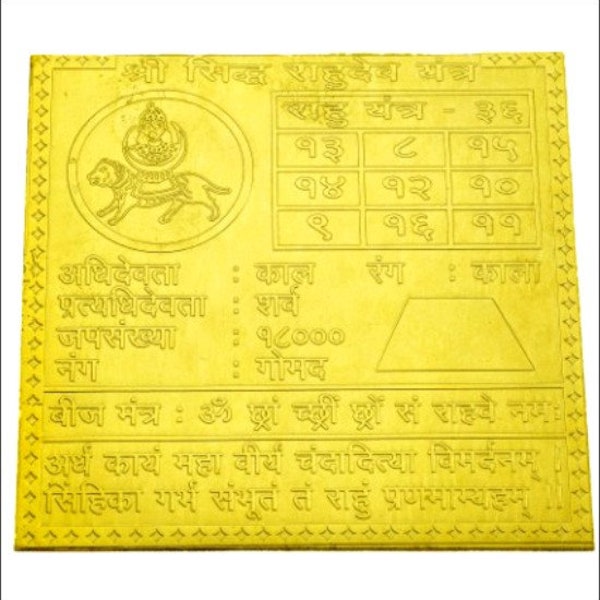 श्री सिद्ध राहुदेव यंत्र
राहु यंत्र - ३६
१३ ८ १५
१४ १२ १०
९ १६ ११
अधिदेवता : काल रंग : काला
प्रत्यधिदेवता : शर्व
जपसंख्या : १८०००
नंग : गोमद
बीज मंत्र : ॐ छ्रां च्छ्रीं छ्रों सं राहवे नमः
अर्ध कायं महा वीर्य चंदादित्या विमर्दनम् ।
सिंहिका गर्भ संभूतं तं राहुं प्रणमाम्यहम् ।।